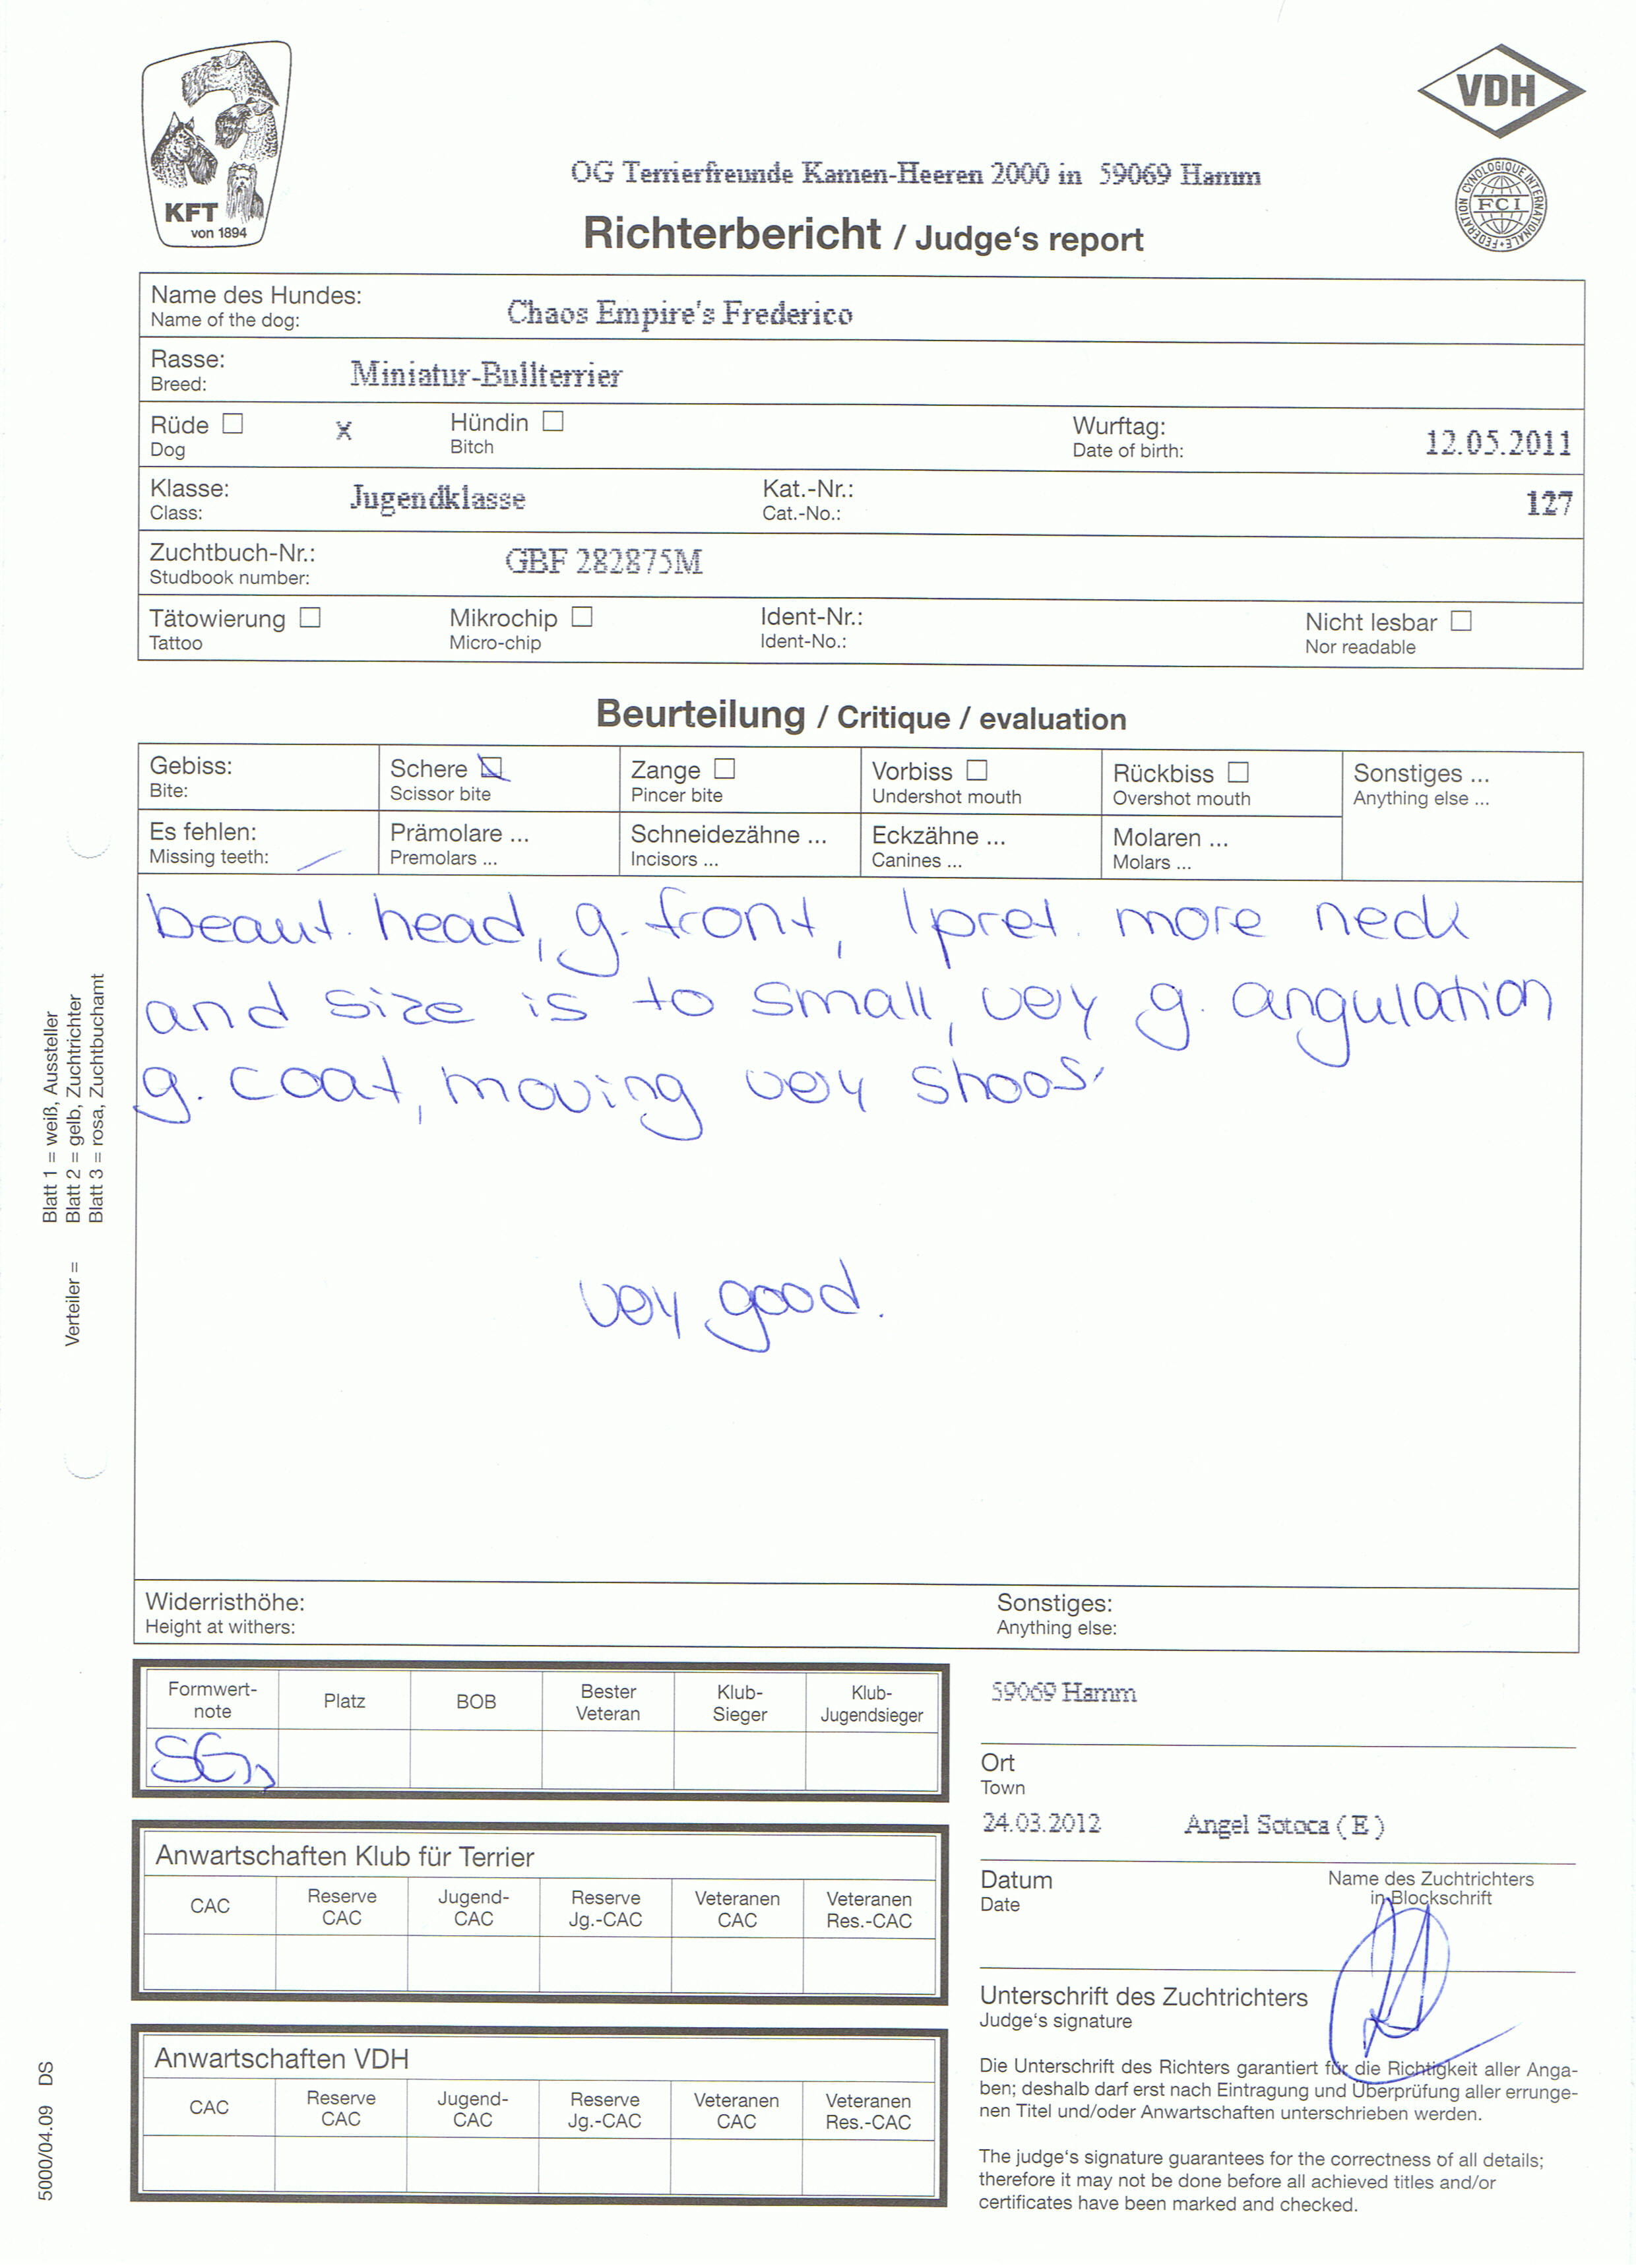 KFT
von 1894
VDH
FEDERATION CYNOLOGIQUE INTERNATIONALE
FCI
OG Terrierfreunde Kamen-Heeren 2000 in 59069 Hamm
Richterbericht / Judge's report
Name des Hundes:
Name of the dog:
Chaos Empire's Frederico
Rasse:
Breed:
Miniatur-Bullterrier
Rüde ☐ x Hündin ☐ Wurftag:
Dog Bitch Date of birth:
12.05.2011
Klasse: Kat.-Nr.:
Class: Cat.-No.:
Jugendklasse 127
Zuchtbuch-Nr.:
Studbook number:
GBF 282875M
Tätowierung ☐ Mikrochip ☐ Ident-Nr.: Nicht lesbar ☐
Tattoo Micro-chip Ident-No.: Nor readable
Beurteilung / Critique / evaluation
Gebiss: Schere ☐ Zange ☐ Vorbiss ☐ Rückbiss ☐ Sonstiges ...
Bite: Scissor bite Pincer bite Undershot mouth Overshot mouth Anything else ...
Es fehlen: Prämolare ... Schneidezähne ... Eckzähne ... Molaren ...
Missing teeth: Premolars ... Incisors ... Canines ... Molars ...
beaut. head, g. front, I pref. more neck
and size is to small, very g. angulation
g. coat, moving very
very good.
Widerristhöhe: Sonstiges:
Height at withers: Anything else:
Formwert-
note
Platz
BOB
Bester
Veteran
Klub-
Sieger
Klub-
Jugendsieger
SG
59069 Hamm
Ort
Town
24.03.2012 Angel Sotoca ( E )
Datum
Date
Name des Zuchtrichters
in Blockschrift
Unterschrift des Zuchtrichters
Judge's signature
Anwartschaften Klub für Terrier
CAC
Reserve
CAC
Jugend-
CAC
Reserve
Jg.-CAC
Veteranen
CAC
Veteranen
Res.-CAC
Anwartschaften VDH
CAC
Reserve
CAC
Jugend-
CAC
Reserve
Jg.-CAC
Veteranen
CAC
Veteranen
Res.-CAC
Die Unterschrift des Richters garantiert für die Richtigkeit aller Anga-
ben; deshalb darf erst nach Eintragung und Überprüfung aller errunge-
nen Titel und/oder Anwartschaften unterschrieben werden.
The judge's signature guarantees for the correctness of all details;
therefore it may not be done before all achieved titles and/or
certificates have been marked and checked.
Verteiler = Blatt 1 = weiß, Aussteller
Blatt 2 = gelb, Zuchtrichter
Blatt 3 = rosa, Zuchtbuchamt
5000/04.09 DS